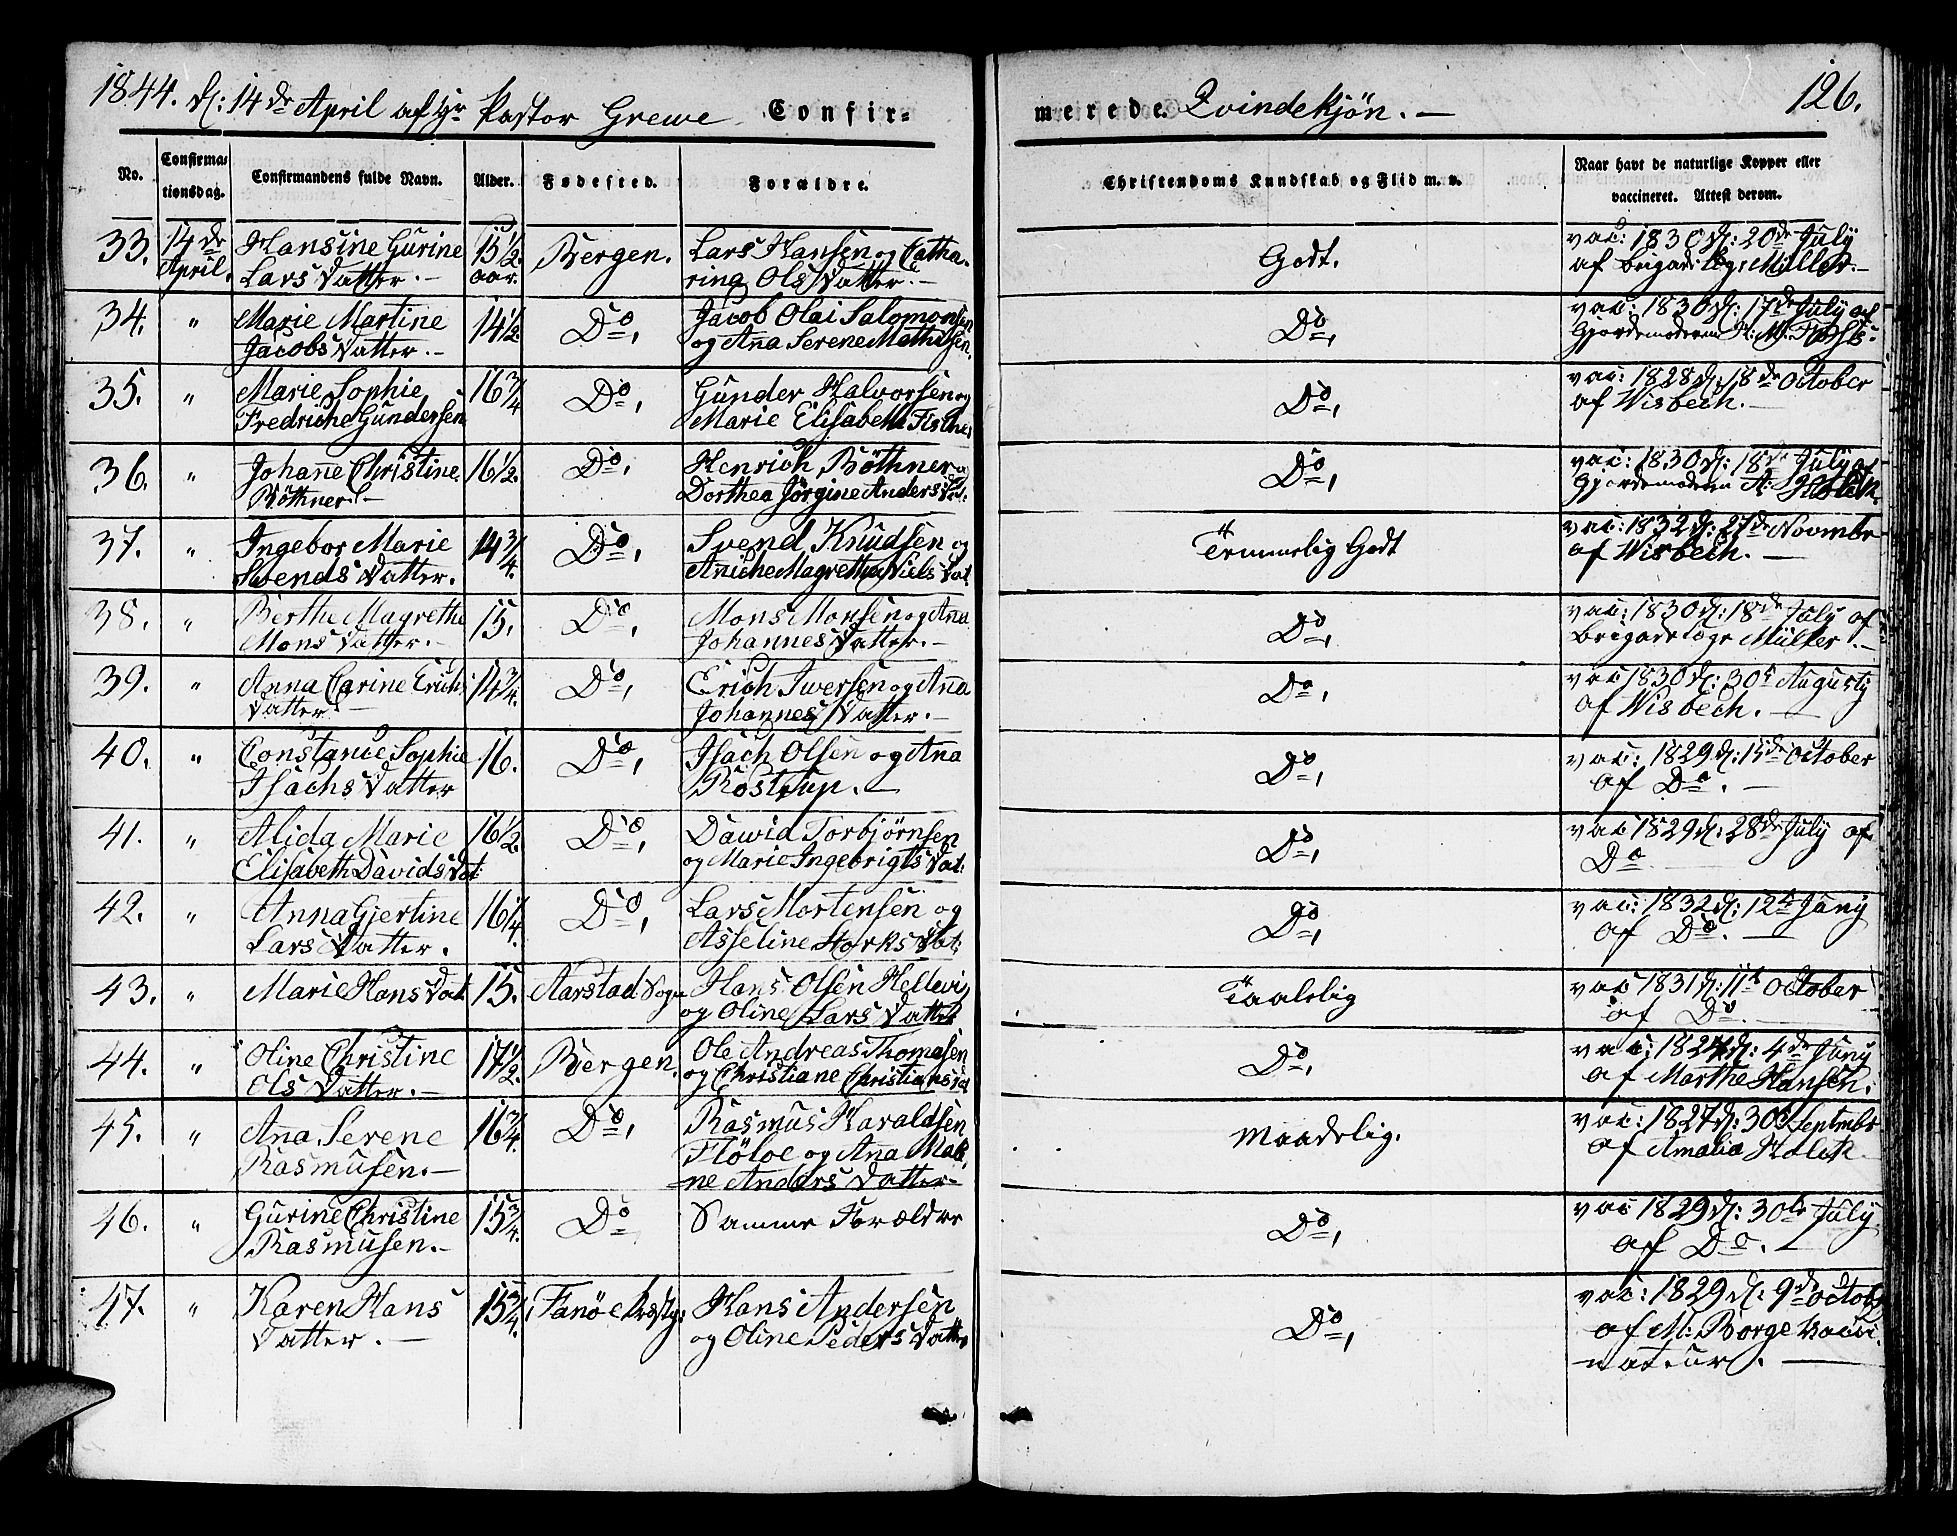 1844. d: 14de April af Hr Pastor Grewe Confir-
merede. Qvindekjön. —
126.
No.
Confirma-
tionsdag.
Confirmandens fulde Navn.
Alder.
Fødested.
Forældre.
Christendoms Kundskab og Flid m. v.
Naar havt de naturlige Kopper eller
vaccineret. Attest derom.
33. 14de Hansine Gurine 15 1/2 Bergen. Lars Hansen og Catha- Godt. vac: 1830 d: 20de July
April. Lars Datter. — aar. rina Ols Datter. — af Brigade Müller. —
34. " Marie Martine 14 1/2 Do, Jacob Olai Salomonsen Do, vac: 1830 d: 17de July af
Jacobs Datter. — og Anna Serene Mathisen. Gjordemoderen
35. " Marie Sophie 16 3/4 Do, Gunder Halvorsen og Do, vac: 1828 d: 18de October
Fredriche Gundersen Marie Elisabeth Fischer af Wisbech. —
36. " Johanne Christine 16 1/2 Do, Henrich Böthner og Do, vac: 1830 d: 18de July af
Böthner. — Dorthea Jörgine Anders Dat. Gjordemoderen A: Holck.
37. " Ingebor Marie 14 3/4 Do, Svend Knudsen og Temmelig Godt vac: 1832 d: 27de Novmbr
Svends Datter. Aniche Magretha Niels Dat af Wisbech. —
38. " Berthe Magrethe 15. Do, Mons Monsen og Anna Do, vac: 1830 d: 18de July af
Mons Datter. — Johannes Datter. — Brigadelæge Müller. —
39. " Anna Carine Erichs 14 3/4 Do, Erich Iwersen og Anna Do, vac 1830 d: 30t Augusty
Datter. — Johannes Datter. — af Wisbech. —
40. " Constance Sophie 16. Do, Isach Olsen og Anna Do, vac: 1829 d: 15de October
Isachs Datter Rostrup. — af Do. —
41. " Alida Marie 16 1/2 Do, Dawid Torbjörnsen Do, vac 1829 d: 28de July af
Elisabeth Davids Dat: og Marie Ingebrigts Dat: Do
42. " Anna Gjertine 16 1/4 Do, Lars Mortensen og Do, vac: 1832 d: 12te Juny
Lars Datter. Asseline Storks Dat: af Do. —
43. " Marie Hans Dat 15. Aarstad Sogn Hans Olsen Hellevig Taalelig vac 1831 d: 11te October
og Oline Lars Datter af Do.
44. " Oline Christine 17 1/2 Bergen. Ole Andreas Thomasen Do, vac: 1827 d: 4de Juny
Ols Datter. — og Christiane Christians d af Marthe Hansen.
45. " Anna Serene 16 3/4 Do, Rasmus Haraldsen Maadelig. vac: 1827 d: 30t Septmbr
Rasmusen. — Flöloe og Anna Mali- af Amalia Holck.
ne Anders Datter —
46. " Gurine Christine 15 3/4 Do Samme Forældre Do, vac 1829 d: 30te July
Rasmusen. — af Do. —
47. " Karen Hans 15 3/4 Fanöe Hans Andersen Do, vac: 1829 d: 9de Octob
Datter. — og Oline Peders Datter af M: Borge Vacci-
nateur. —